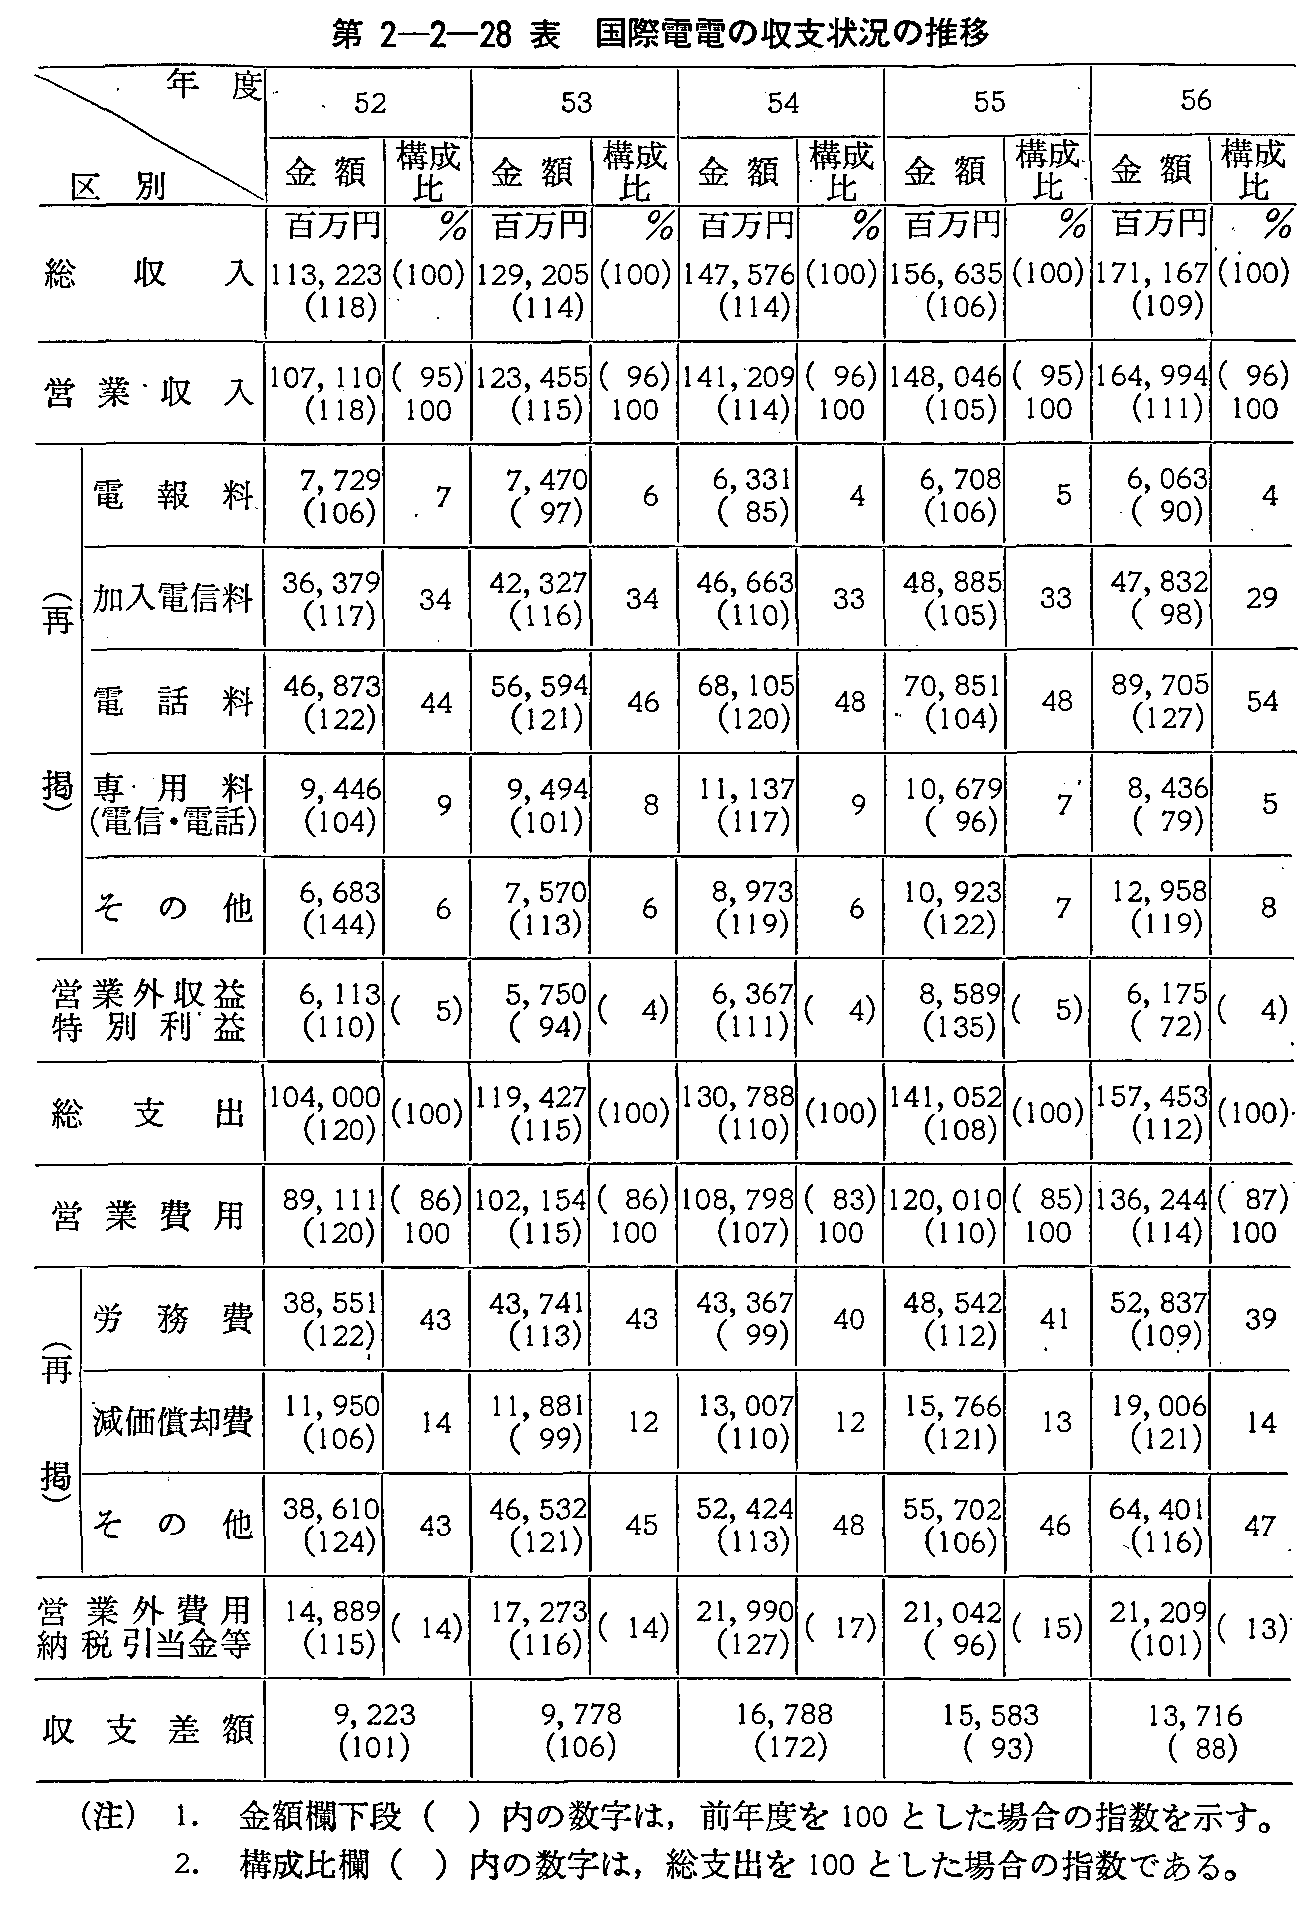 第 2―2―28 表　国際電電の収支状況の推移
年 度 52 53 54 55 56
区 別 金 額 構成比 金 額 構成比 金 額 構成比 金 額 構成比 金 額 構成比
百万円 % 百万円 % 百万円 % 百万円 % 百万円 %
総 収 入 113,223 (100) 129,205 (100) 147,576 (100) 156,635 (100) 171,167 (100)
(118) (114) (114) (106) (109)
営 業 収 入 107,110 ( 95) 123,455 ( 96) 141,209 ( 96) 148,046 ( 95) 164,994 ( 96)
(118) 100 (115) 100 (114) 100 (105) 100 (111) 100
(再 掲)
電 報 料 7,729 7 7,470 6 6,331 4 6,708 5 6,063 4
(106) ( 97) ( 85) (106) ( 90)
加入電信料 36,379 34 42,327 34 46,663 33 48,885 33 47,832 29
(117) (116) (110) (105) ( 98)
電 話 料 46,873 44 56,594 46 68,105 48 70,851 48 89,705 54
(122) (121) (120) (104) (127)
専 用 料 9,446 9 9,494 8 11,137 9 10,679 7 8,436 5
(電信・電話) (104) (101) (117) ( 96) ( 79)
そ の 他 6,683 6 7,570 6 8,973 6 10,923 7 12,958 8
(144) (113) (119) (122) (119)
営 業 外 収 益 6,113 ( 5) 5,750 ( 4) 6,367 ( 4) 8,589 ( 5) 6,175 ( 4)
特 別 利 益 (110) ( 94) (111) (135) ( 72)
総 支 出 104,000 (100) 119,427 (100) 130,788 (100) 141,052 (100) 157,453 (100)
(120) (115) (110) (108) (112)
営 業 費 用 89,111 ( 86) 102,154 ( 86) 108,798 ( 83) 120,010 ( 85) 136,244 ( 87)
(120) 100 (115) 100 (107) 100 (110) 100 (114) 100
(再 掲)
労 務 費 38,551 43 43,741 43 43,367 40 48,542 41 52,837 39
(122) (113) ( 99) (112) (109)
減価償却費 11,950 14 11,881 12 13,007 12 15,766 13 19,006 14
(106) ( 99) (110) (121) (121)
そ の 他 38,610 43 46,532 45 52,424 48 55,702 46 64,401 47
(124) (121) (113) (106) (116)
営 業 外 費 用 14,889 ( 14) 17,273 ( 14) 21,990 ( 17) 21,042 ( 15) 21,209 ( 13)
納 税 引当金等 (115) (116) (127) ( 96) (101)
収 支 差 額 9,223 9,778 16,788 15,583 13,716
(101) (106) (172) ( 93) ( 88)
(注) 1. 金額欄下段 ( ) 内の数字は，前年度を 100 とした場合の指数を示す。
2. 構成比欄 ( ) 内の数字は，総支出を 100 とした場合の指数である。